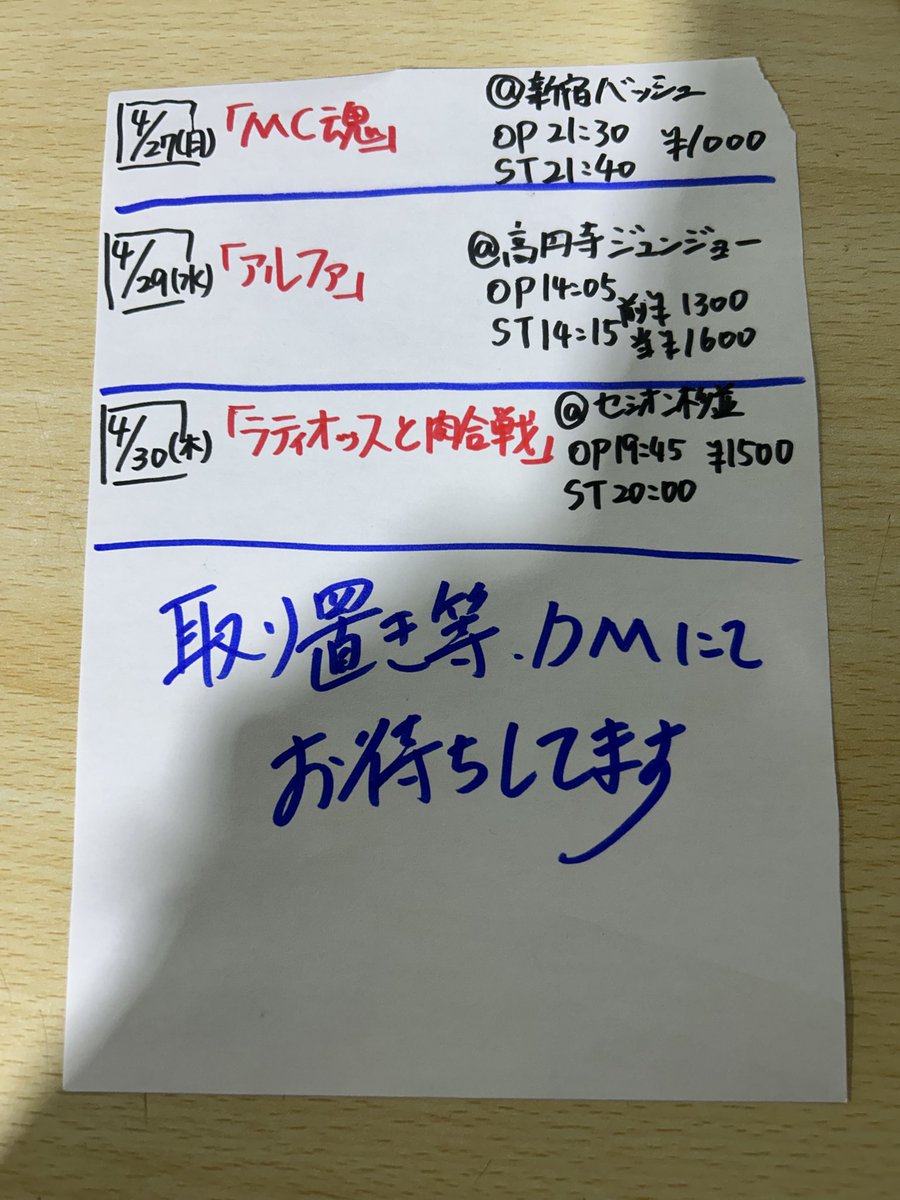 4/27(月) 「MC魂」 @新宿バッシュ
OP 21:30 ¥1000
ST 21:40
4/29(水) 「アルファ」 @高円寺ジュンジョー
OP 14:05 前¥1300
ST 14:15 当¥1600
4/30(木) 「ラティオッスと肉合戦」 @セシオン杉並
OP19:45 ¥1500
ST 20:00
取り置き等、DMにて
お待ちしてます